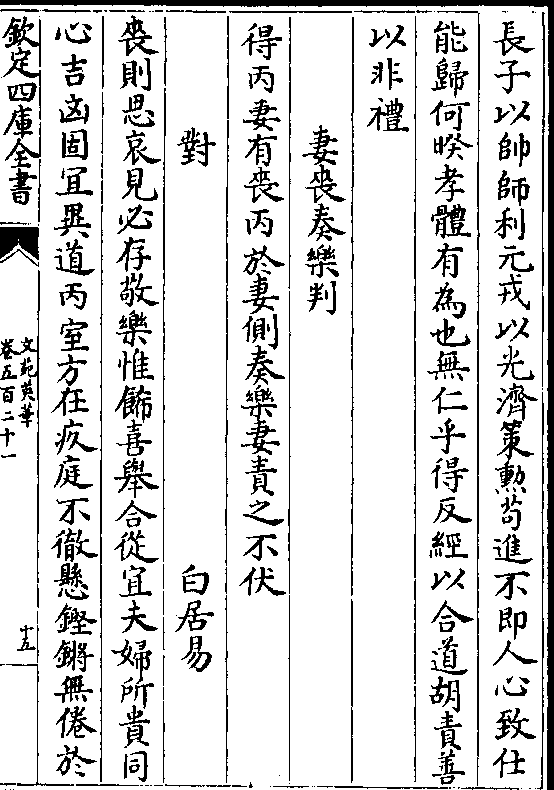 長子以帥師利元戎以光濟策勲苟進不即人心致仕
能歸何暌孝體有為也無仁乎得反經以合道胡責善
以非禮
妻喪奏樂判
得丙妻有喪丙於妻側奏樂妻責之不伏
對　白居易
喪則思哀見必存敬樂惟飾喜舉合從宜夫婦所貴同
心吉凶固宜異道丙室方在疚庭不徹懸鏗鏘無倦於
欽定四庫全書
文苑英華
卷五百二十一
十五